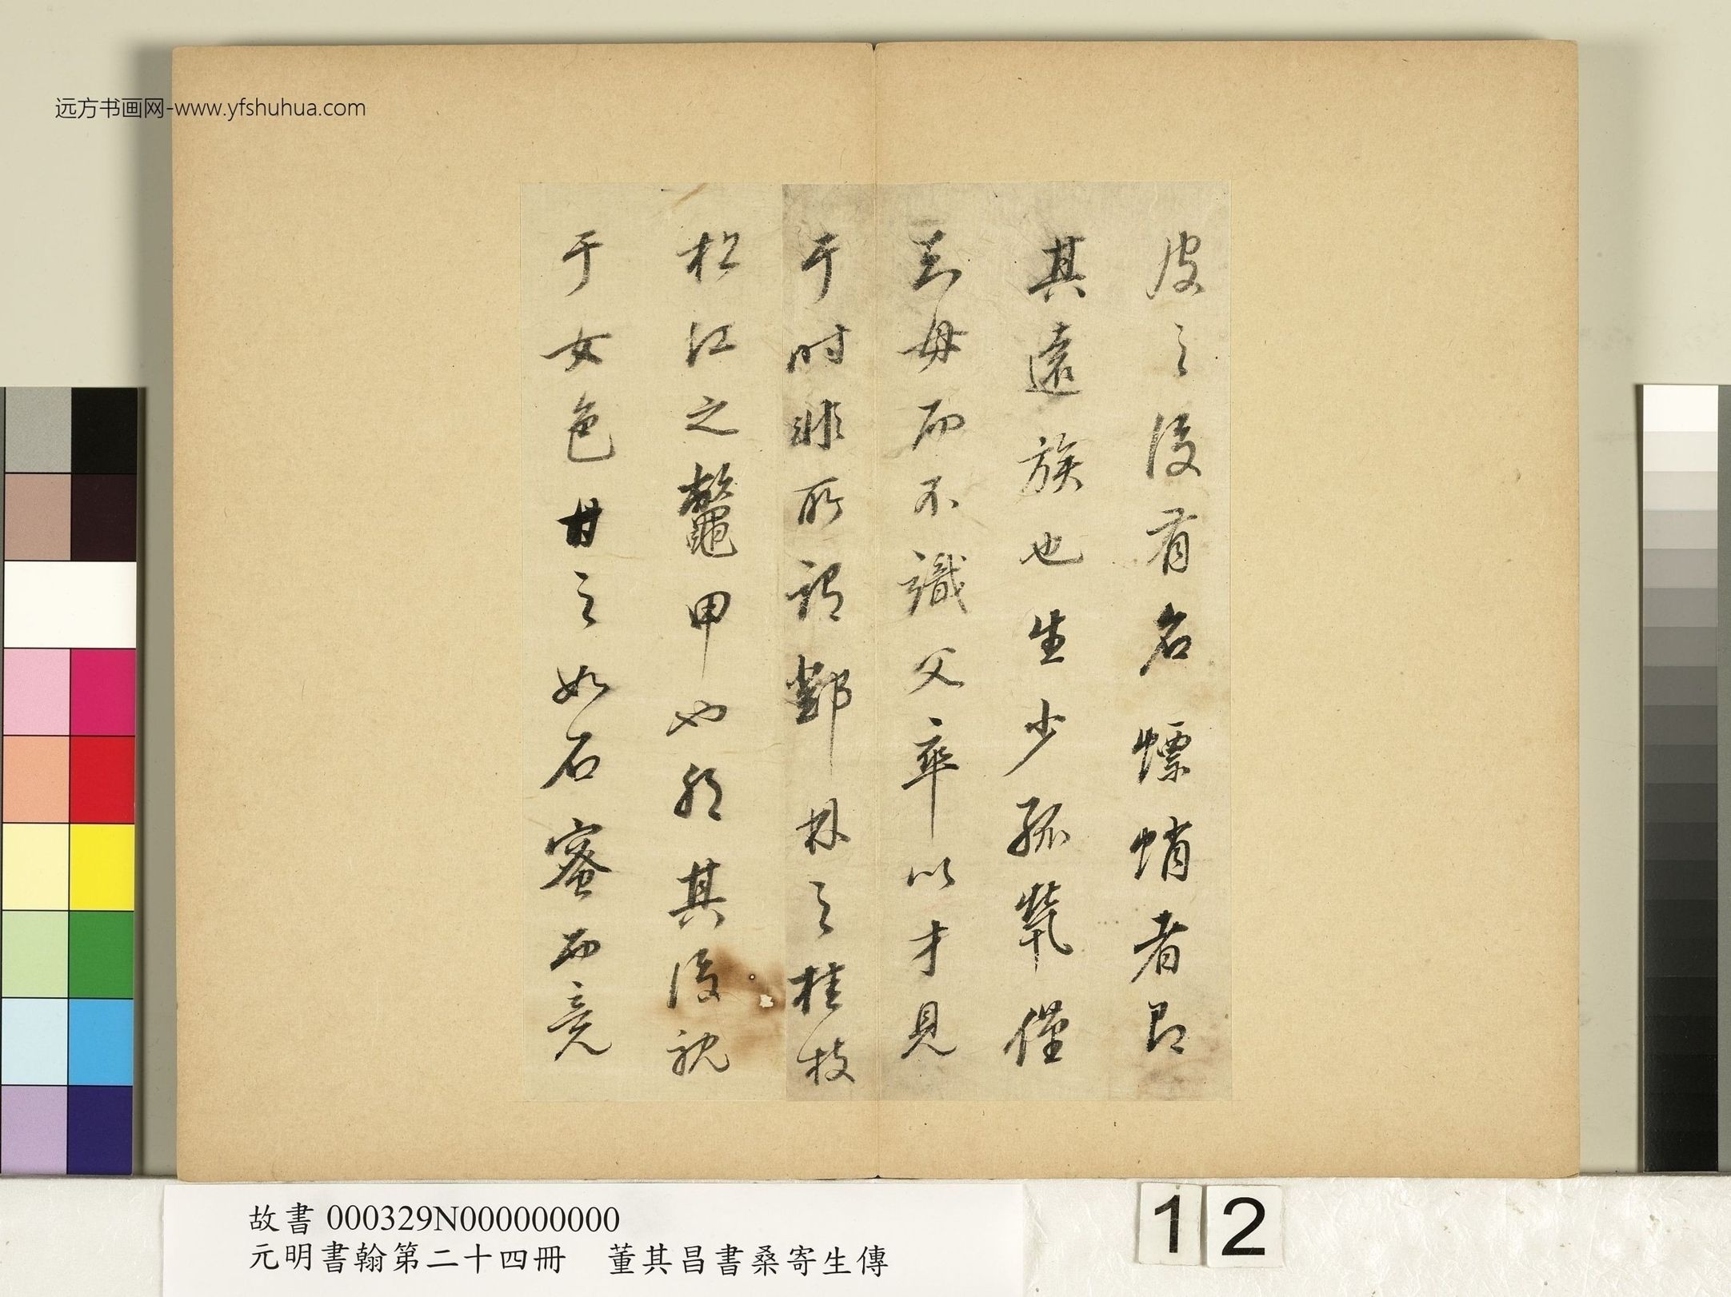 远方书画网-www.yfshuhua.com
皮之後有名螵蛸者即
其遠族也生少孤煢僅
知母而不識父卒以才見
于時非所謂鄧林之桂枝
松江之鼇甲也耶其後耽
于女色甘之如石蜜而竟
故書 000329N000000000
元明書翰第二十四冊 董其昌書桑寄生傳
12